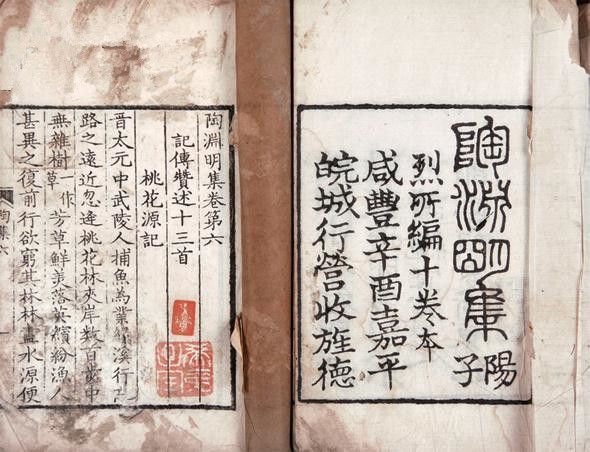 陶淵明集陽子
烈所編十卷本
咸豐辛酉嘉平
皖城行營收旌德
陶淵明集卷第六
記傳贊述十三首
桃花源記
晉太元中武陵人捕魚為業緣溪行
路之遠近忽逢桃花林夾岸數百步中
無雜樹一作草芳草鮮美落英繽紛漁人
甚異之復前行欲窮其林林盡水源便
陶集六